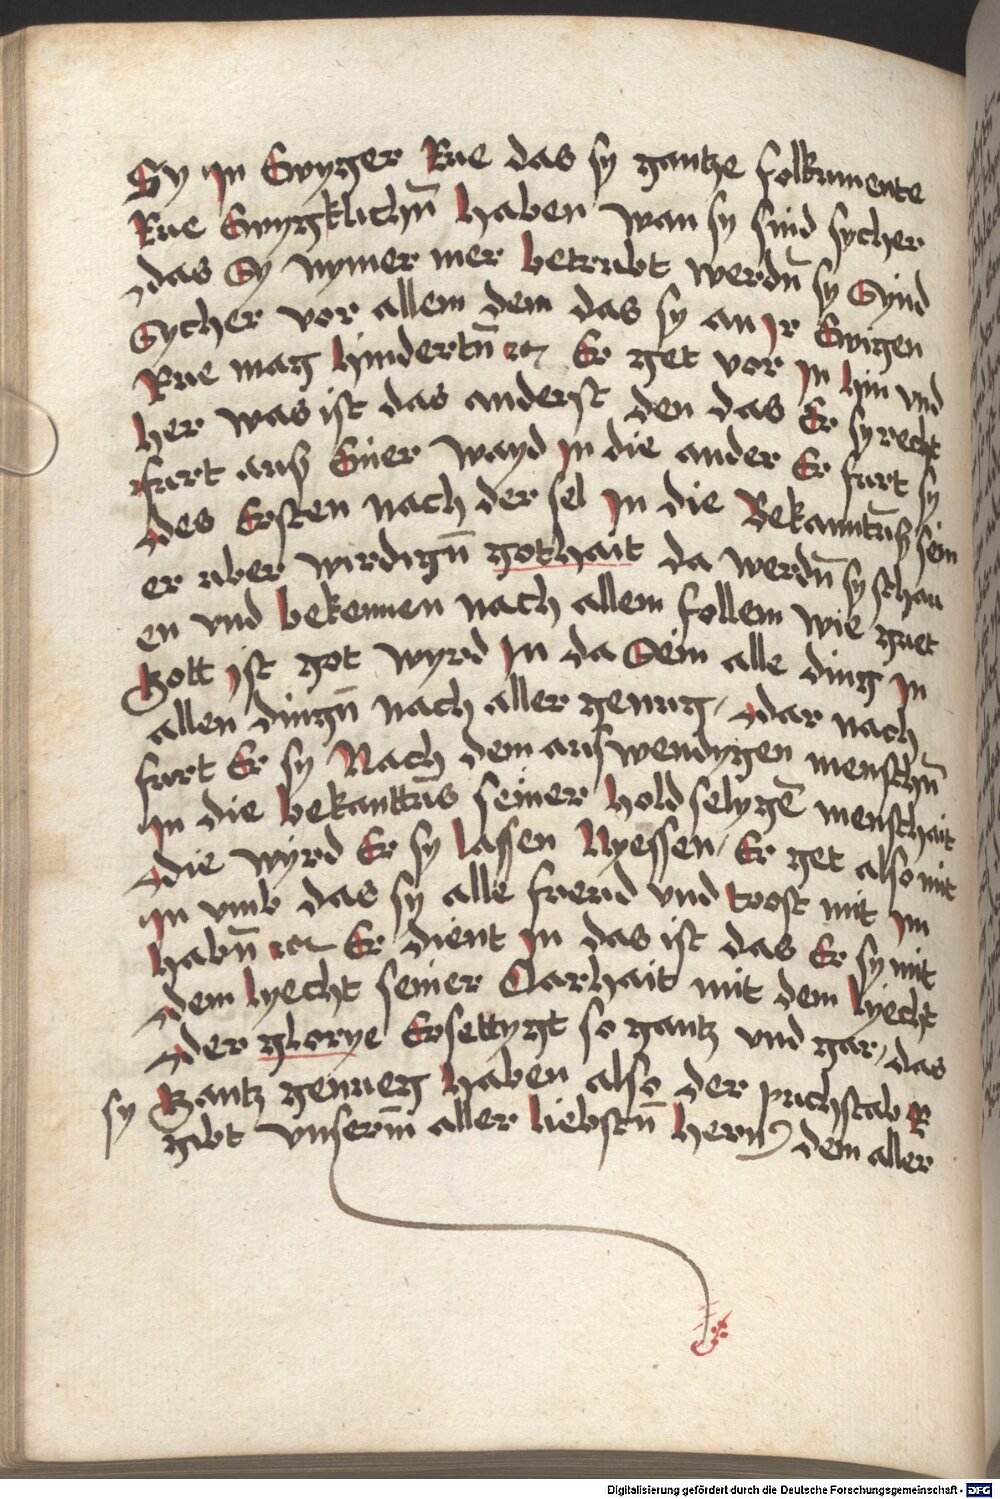 Sy in Ewyger Rue das sy gantze folkumente
Rue Ewygklichn̄ haben wan sy sind sycher
das Sy nymer mer betrubt werdn̄ sy Synd
Sycher vor allem dem das sy an Ir Ewigen
Rue mag hindertn̄ ꝛc Er get vor In hin vnd
her was ist das anderst den das Er sy recht
furt ausz Einer wayd In die ander Er furt sy
des Ersten nach der sel In die Bekanntn̄sz sein
er uber wirdign̄ gothait da werdn̄ sy schau
en vnd bekennen nach allem follem wie guet
Gott ist got wyrd In da Sein alle ding In
allen dingn̄ nach aller genug / dar nach
furt Er sy Nach dem auswendygen menschn̄
In die bekanttn̄s seiner holdselygē menschait
die wyrd Er sy lassen Nyessen / Er get also mit
In vmb das sy alle freud vnd trost mit Im
habn̄ ꝛc Er dient In das ist das Er sy mit
dem lyecht seiner Clarhait mit dem lyecht
der glorye Ersettygt so gantz vnd gar / das
sy Gantz genueg haben also der puchstab R
gibt vnserm̄ aller liebstn̄ hern dem aller
Digitalisierung gefördert durch die Deutsche Forschungsgemeinschaft - DFG